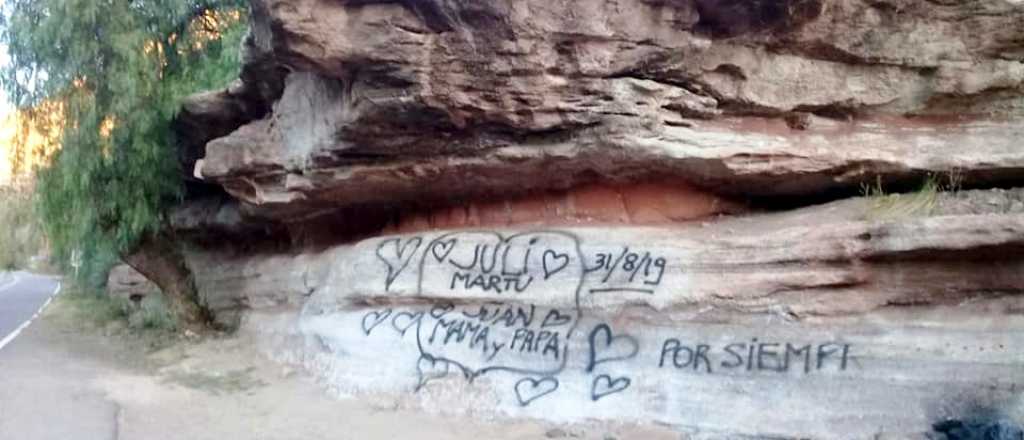 JULi
MARTU
31/8/19
JUAN
MAMA y PAPA
POR SiEMPR